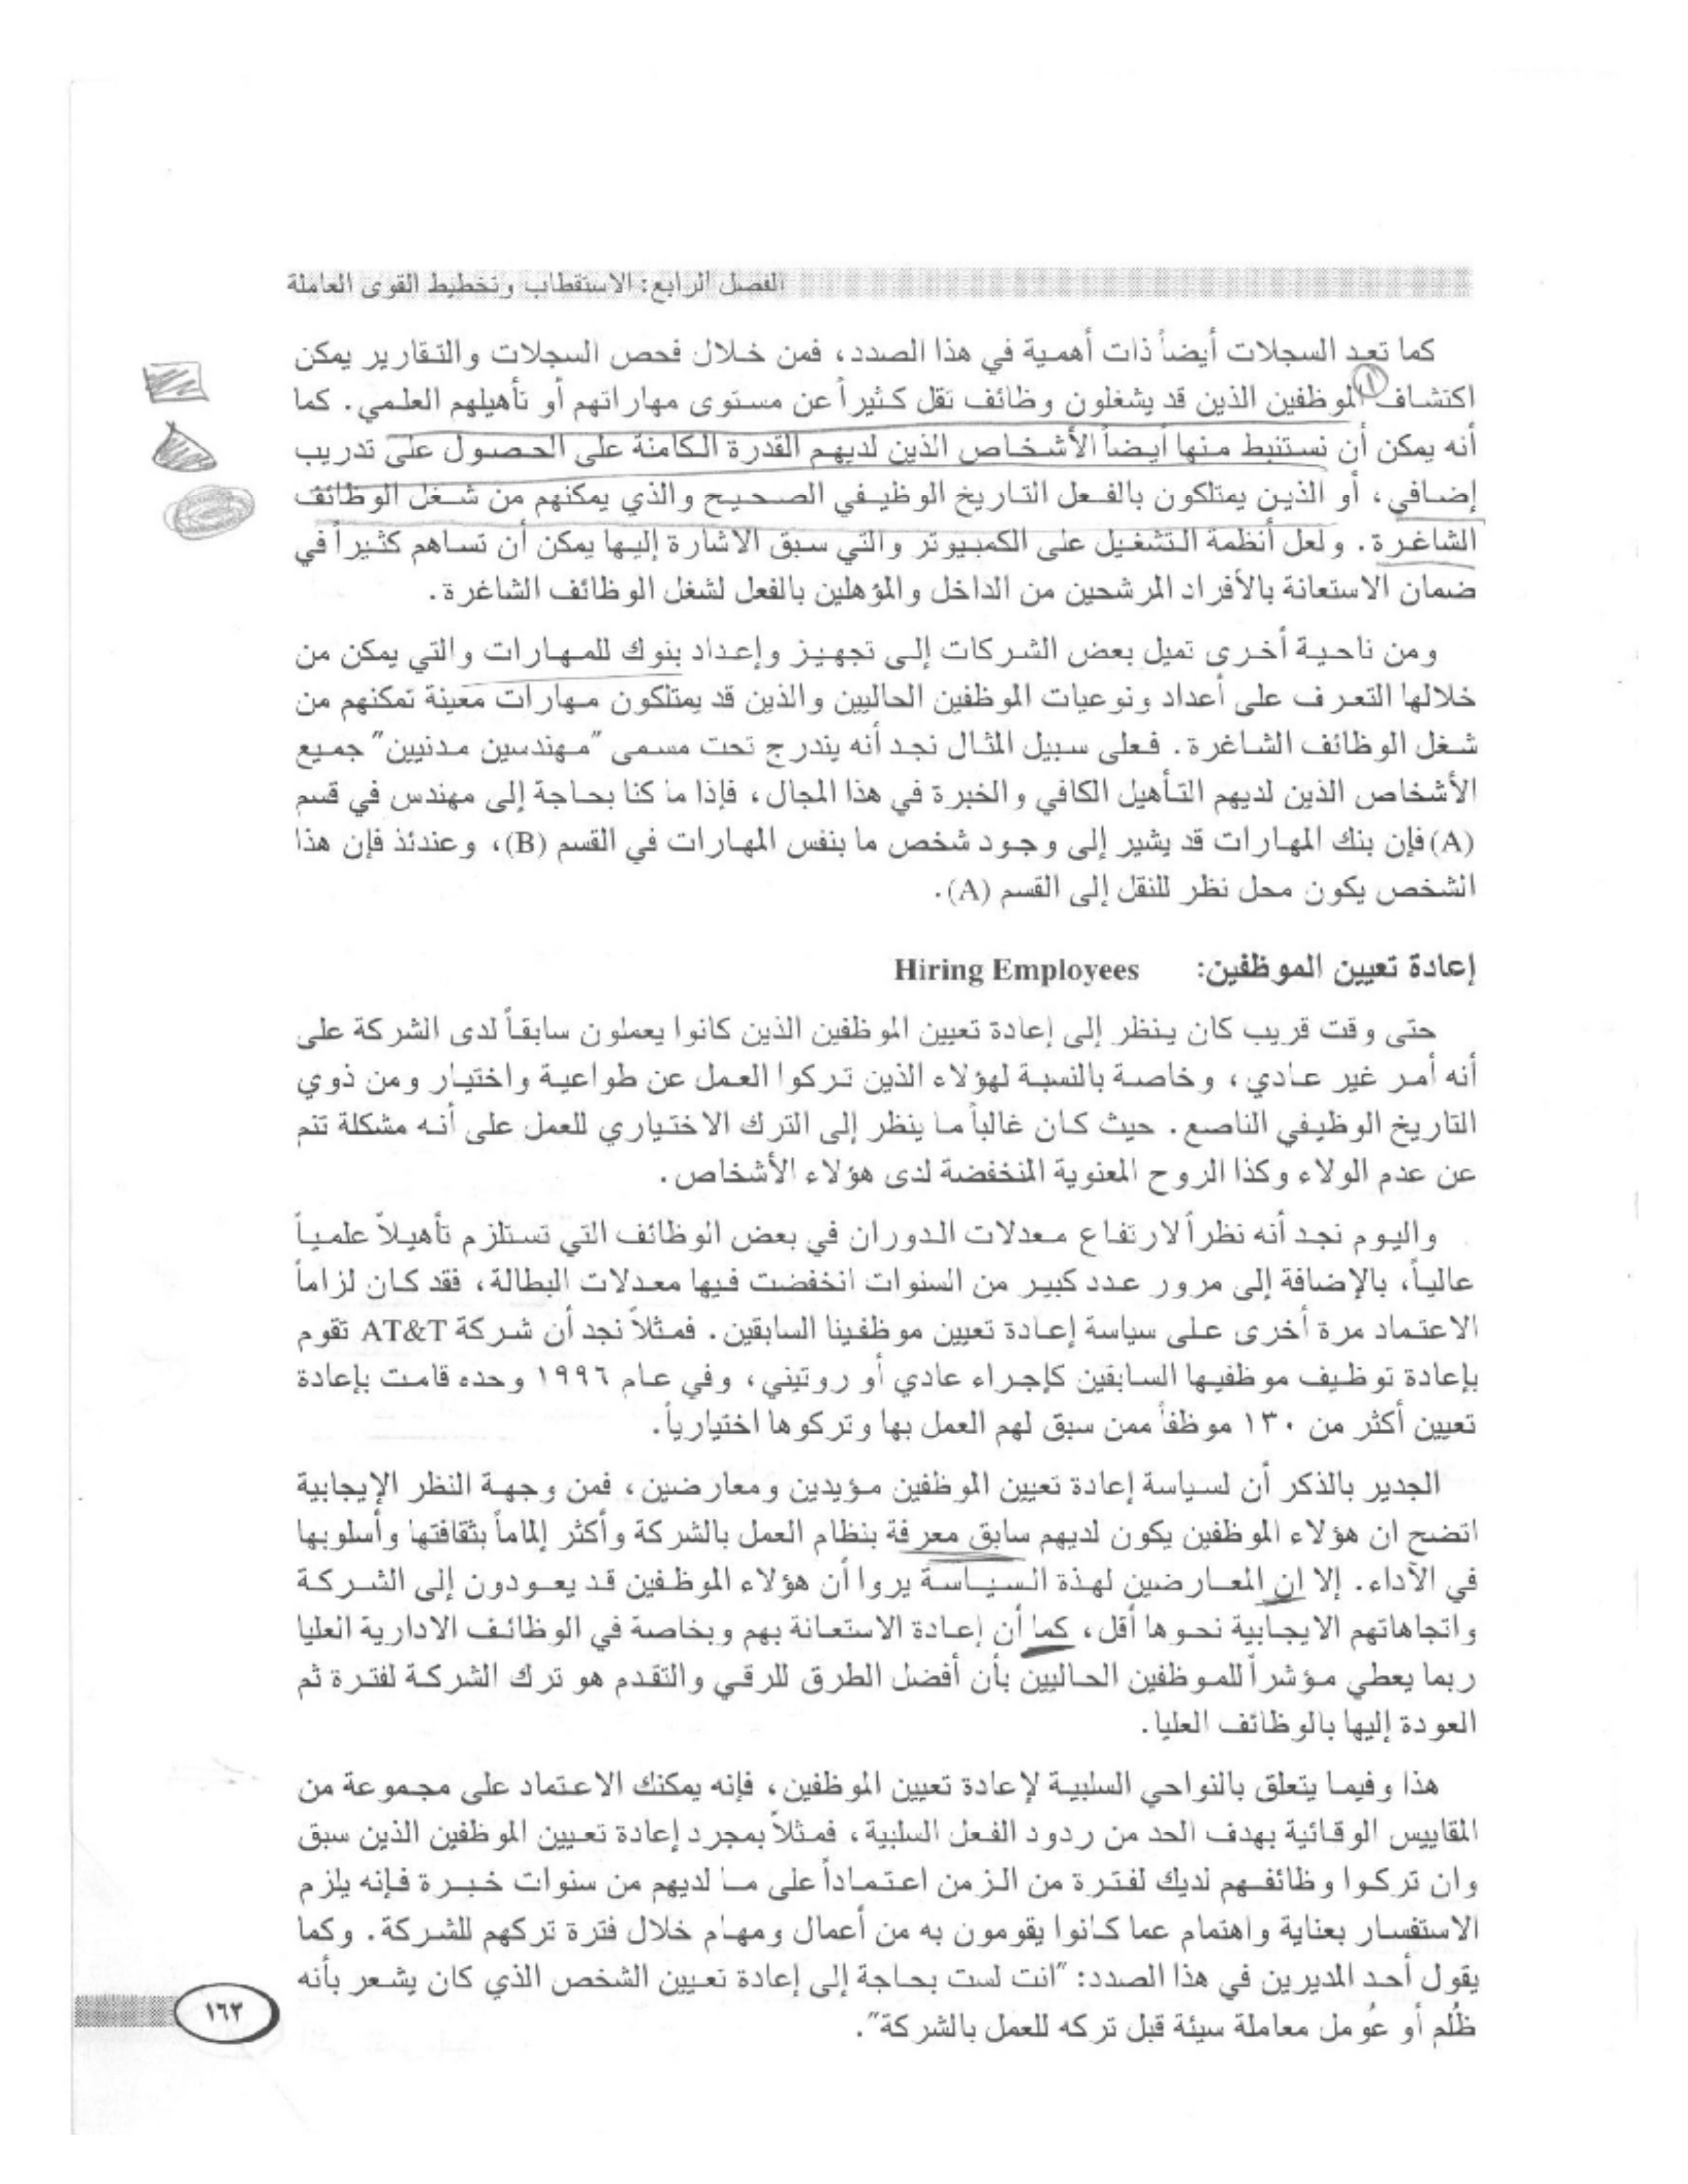 الفصل الرابع: الاستقطاب وتخطيط القوى العاملة
كما تعد السجلات أيضاً ذات أهمية في هذا الصدد، فمن خلال فحص السجلات والتقارير يمكن
اكتشاف ١ الموظفين الذين قد يشغلون وظائف تقل كثيراً عن مستوى مهاراتهم أو تأهيلهم العلمي. كما
أنه يمكن أن نستنبط منها أيضاً الأشخاص الذين لديهم القدرة الكامنة على الحصول على تدريب
إضافي، أو الذين يمتلكون بالفعل التاريخ الوظيفي الصحيح والذي يمكنهم من شغل الوظائف
الشاغرة. ولعل أنظمة التشغيل على الكمبيوتر والتي سبق الاشارة إليها يمكن أن تساهم كثيراً في
ضمان الاستعانة بالأفراد المرشحين من الداخل والمؤهلين بالفعل لشغل الوظائف الشاغرة.
ومن ناحية أخرى تميل بعض الشركات إلى تجهيز وإعداد بنوك للمهارات والتي يمكن من
خلالها التعرف على أعداد ونوعيات الموظفين الحاليين والذين قد يمتلكون مهارات معينة تمكنهم من
شغل الوظائف الشاغرة. فعلى سبيل المثال نجد أنه يندرج تحت مسمى "مهندسين مدنيين" جميع
الأشخاص الذين لديهم التأهيل الكافي والخبرة في هذا المجال، فإذا ما كنا بحاجة إلى مهندس في قسم
(A) فإن بنك المهارات قد يشير إلى وجود شخص ما بنفس المهارات في القسم (B)، وعندئذ فإن هذا
الشخص يكون محل نظر للنقل إلى القسم (A).
إعادة تعيين الموظفين: Hiring Employees
حتى وقت قريب كان ينظر إلى إعادة تعيين الموظفين الذين كانوا يعملون سابقاً لدى الشركة على
أنه أمر غير عادي، وخاصة بالنسبة لهؤلاء الذين تركوا العمل عن طواعية واختيار ومن ذوي
التاريخ الوظيفي الناصع. حيث كان غالباً ما ينظر إلى الترك الاختياري للعمل على أنه مشكلة تنم
عن عدم الولاء وكذا الروح المعنوية المنخفضة لدى هؤلاء الأشخاص.
واليوم نجد أنه نظراً لارتفاع معدلات الدوران في بعض الوظائف التي تستلزم تأهيلاً علمياً
عالياً، بالإضافة إلى مرور عدد كبير من السنوات انخفضت فيها معدلات البطالة، فقد كان لزاماً
الاعتماد مرة أخرى على سياسة إعادة تعيين موظفينا السابقين. فمثلاً نجد أن شركة AT&T تقوم
بإعادة توظيف موظفيها السابقين كإجراء عادي أو روتيني، وفي عام ١٩٩٦ وحده قامت بإعادة
تعيين أكثر من ١٣٠ موظفاً ممن سبق لهم العمل بها وتركوها اختيارياً.
الجدير بالذكر أن لسياسة إعادة تعيين الموظفين مؤيدين ومعارضين، فمن وجهة النظر الإيجابية
اتضح ان هؤلاء الموظفين يكون لديهم سابق معرفة بنظام العمل بالشركة وأكثر إلماماً بثقافتها وأسلوبها
في الآداء. إلا ان المعارضين لهذة السياسة يروا أن هؤلاء الموظفين قد يعودون إلى الشركة
واتجاهاتهم الايجابية نحوها أقل، كما أن إعادة الاستعانة بهم وبخاصة في الوظائف الادارية العليا
ربما يعطي مؤشراً للموظفين الحاليين بأن أفضل الطرق للرقي والتقدم هو ترك الشركة لفترة ثم
العودة إليها بالوظائف العليا.
هذا وفيما يتعلق بالنواحي السلبية لإعادة تعيين الموظفين، فإنه يمكنك الاعتماد على مجموعة من
المقاييس الوقائية بهدف الحد من ردود الفعل السلبية، فمثلاً بمجرد إعادة تعيين الموظفين الذين سبق
وان تركوا وظائفهم لديك لفترة من الزمن اعتماداً على ما لديهم من سنوات خبرة فإنه يلزم
الاستفسار بعناية واهتمام عما كانوا يقومون به من أعمال ومهام خلال فترة تركهم للشركة. وكما
يقول أحد المديرين في هذا الصدد: "انت لست بحاجة إلى إعادة تعيين الشخص الذي كان يشعر بأنه
ظُلم أو عُومل معاملة سيئة قبل تركه للعمل بالشركة".
١٦٣